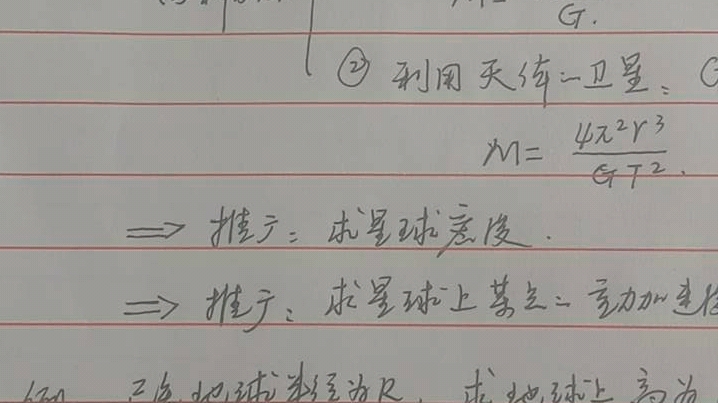 G.
② 利用天体の卫星:
M= 4π²r³ / GT².
⇒ 推广: 求星球密度.
⇒ 推广: 求星球上某点の重力加速
例 已知地球半径为R, 求地球上高为